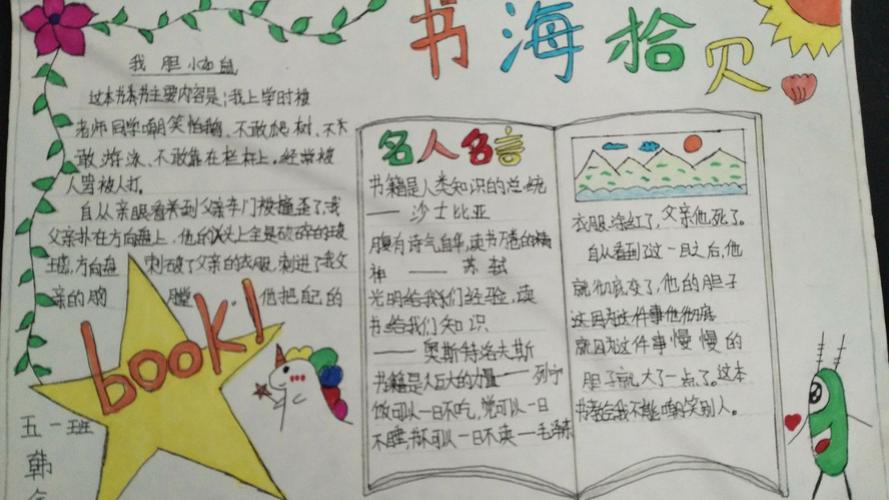 书海拾贝
我胆小如鼠
这本书主要内容是:我上学时被
老师同学嘲笑怕鹅、不敢爬树、不
敢游泳、不敢靠在栏杆上,经常被
人骂被人打。
自从亲眼看到父亲车门被撞歪了,我
父亲扑在方向盘上,他的头上全是破碎的玻
璃,方向盘刺破了父亲的衣服,刺进了我父
亲的胸膛。他把自己的
book!
五一班
韩
名人名言
书籍是人类知识的总统
——莎士比亚
腹有诗气自华,读书万卷的精
神——苏轼
光明给我们经验,读
书给我们知识
——奥斯特洛夫斯
书籍是人巨大的力量——列宁
饭可以一日不吃,觉可以一日
不睡,书不可以一日不读——毛泽东
衣服染红了,父亲他死了。
自从看到了这一目之后,他
就彻底变了,他的胆子
就因为这件事慢慢的
胆子就大了一点了。这本
书教给我不能嘲笑别人。